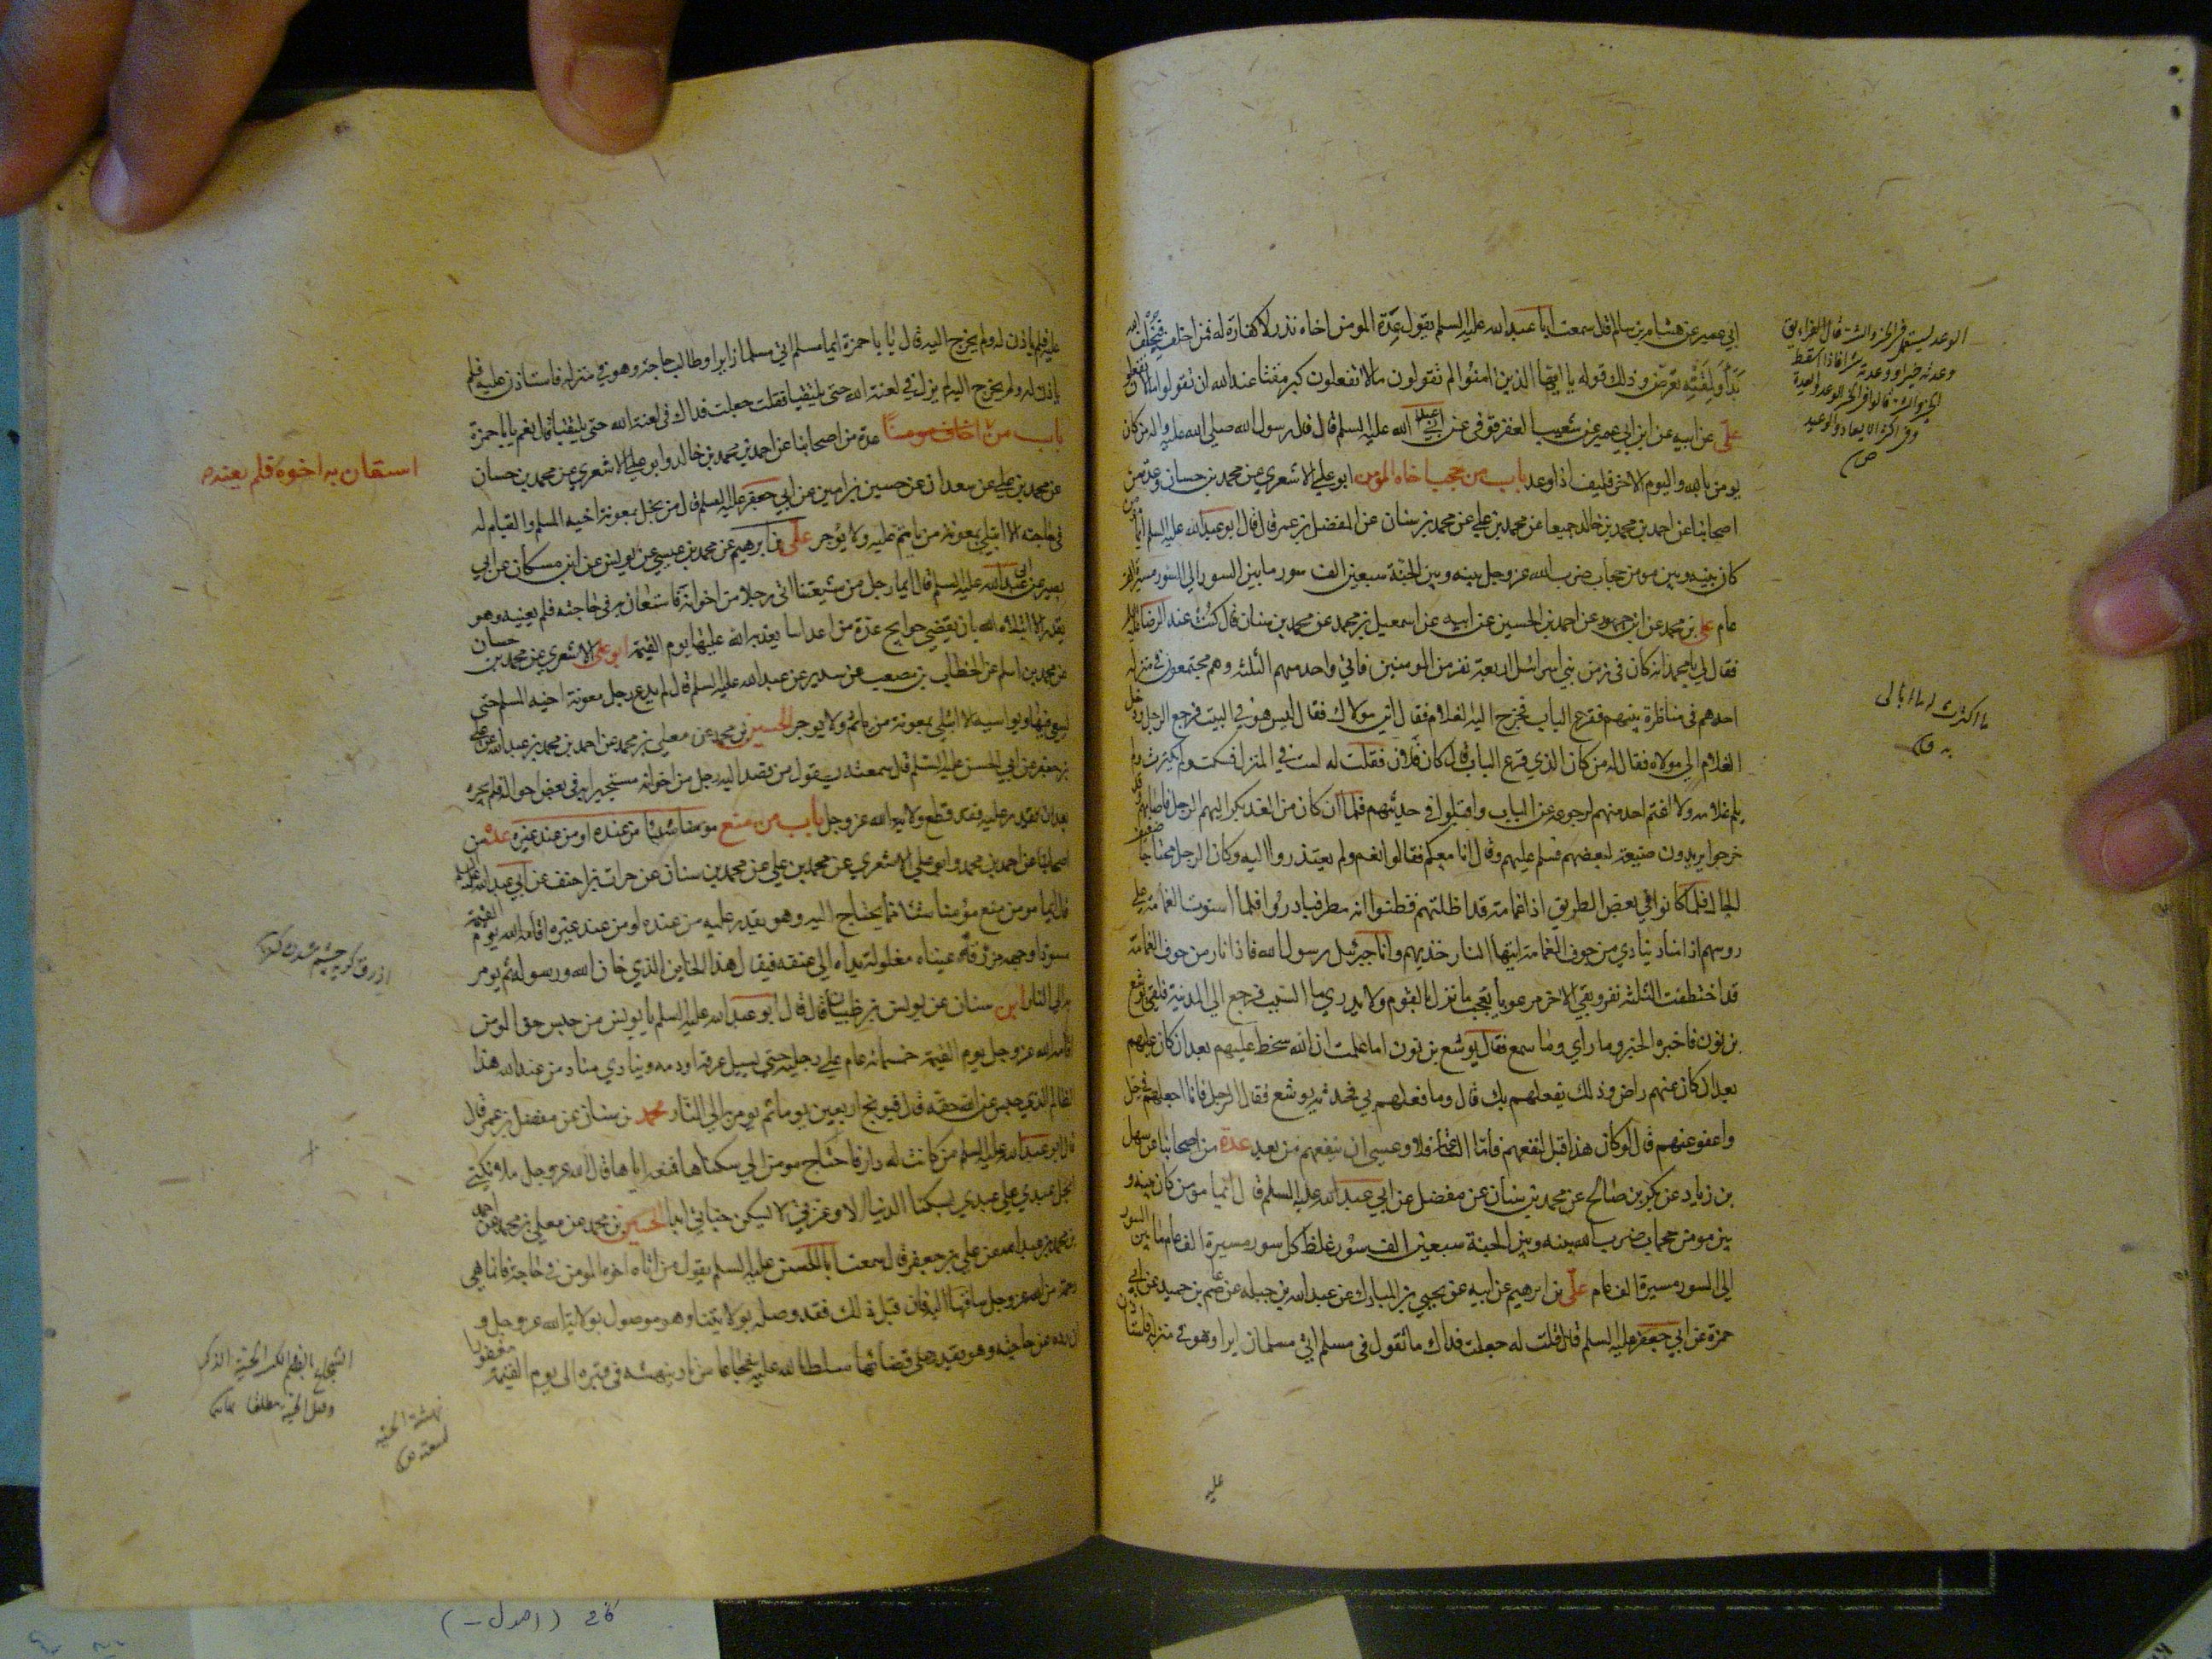 ابي عمير عن هشام بن سالم قال سمعت ابا عبد الله عليه السلم يقول عدة المومن اخاه نذر لا كفارة له فمن اخلف فبخلف الله
بدأ ولمقته تعرض وذلك قوله يا ايها الذين امنوا لم تقولون ما لا تفعلون كبر مقتا عند الله ان تقولوا ما لا تفعلون
علي عن ابيه عن ابن ابي عمير عن شعيب العقرقوفي عن ابي عبد الله عليه السلم قال قال رسول الله صلى الله عليه واله من كان
يومن بالله واليوم الاخر فليف اذا وعد باب من حجب اخاه المومن ابو علي الاشعري عن محمد بن حسان وعدة من
اصحابنا عن احمد بن محمد بن خالد جميعا عن محمد بن علي عن محمد بن سنان عن المفضل بن عمر قال قال ابو عبد الله عليه السلم ايما مومن
كان بينه وبين مومن حجاب ضرب الله عز وجل بينه وبين الجنة سبعين الف سور ما بين السور الى السور مسيرة الف
عام علي بن محمد عن ابن جمهور عن احمد بن الحسين عن ابيه عن اسمعيل بن محمد عن محمد بن سنان قال كنت عند الرضا عليه السلم
فقال لي يا محمد انه كان في زمن بني اسرائيل اربعة نفر من المومنين فاتى واحد منهم الثلثة وهم مجتمعون في منزل
احدهم في مناظرة بينهم فقرع الباب فخرج اليه الغلام فقال اين مولاك فقال ليس هو في البيت فرجع الرجل ودخل
الغلام الى مولاه فقال له من كان الذي قرع الباب قال كان فلان فقلت له لست في المنزل فسكت ولم يكترث ولم
يلم غلامه ولا اغتم احد منهم لرجوعه عن الباب واقبلوا في حديثهم فلما ان كان من الغد بكر اليهم الرجل فاصابهم وقد
خرجوا يريدون ضيعة لبعضهم فسلم عليهم وقال انا معكم فقالوا نعم ولم يعتذروا اليه وكان الرجل محتاجا ضعيف
الحال فلما كانوا في بعض الطريق اذا غمامة قد اظلتهم فظنوا انه مطر فبادروا فلما استوت الغمامة على
روسهم اذا مناد ينادي من جوف الغمامة ايتها النار خذيهم وانا جبرئيل رسول الله فاذا نار من جوف الغمامة
قد اختطفت الثلثة نفر وبقي الاخر مرعوبا يعجب ما نزل بالقوم ولا يدري ما السبب فرجع الى المدينة فلقى يوشع
بن نون فاخبره الخبر وما راى وما سمع فقال يوشع بن نون اما علمت ان الله سخط عليهم بعد ان كان عليهم
بعد ان كان عنهم راض وذلك بفعلهم بك قال وما فعلهم بي فحدثه يوشع فقال الرجل فانا اجعلهم في حل
واعفو عنهم قال لو كان هذا قبل لنفعهم فاما الساعة فلا وعسى ان ينفعهم من بعد عدة من اصحابنا عن سهل
بن زياد عن بكر بن صالح عن محمد بن سنان عن مفضل عن ابي عبد الله عليه السلم قال ايما مومن كان بينه و
بين مومن حجاب ضرب الله بينه وبين الجنة سبعين الف سور غلظ كل سور مسيرة الف عام ما بين السور
الى السور مسيرة الف عام علي بن ابرهيم عن ابيه عن يحيى بن المبارك عن عبد الله بن جبلة عن عاصم بن حميد عن ابي
حمزة عن ابي جعفر عليه السلم قال قلت له جعلت فداك ما تقول في مسلم اتى مسلما زايرا وهو في منزله فاستاذن
عليه
الوعد يستعمل في الخير والشر قال الفراء يق
وعدته خيرا ووعدته شرا فاذا اسقط
الخير والشر قالوا في الخير الوعد والعدة
وفي الشر الايعاد والوعيد
ص
ما اكترث له ما ابالي
به ق
عليه فلم ياذن له ولم يخرج اليه قال يا با حمزة ايما مسلم اتى مسلما زايرا وطالب حاجة وهو في منزله فاستاذن عليه فلم
ياذن له ولم يخرج اليه لم يزل في لعنة الله حتى يلتقيا فقلت جعلت فداك في لعنة الله حتى يلتقيا قال نعم يا با حمزة
باب من اخلف مومنا عدة من اصحابنا عن احمد بن محمد بن خالد وابو علي الاشعري عن محمد بن حسان
عن محمد بن علي عن سعدان عن حسين بن امين عن ابي جعفر عليه السلم قال من بخل بمعونة اخيه المسلم والقيام له
في حاجته الا ابتلي بمعونة من ياثم عليه ولا يوجر علي بن ابرهيم عن محمد بن عيسى عن يونس عن ابن مسكان عن ابي
بصير عن ابي عبد الله عليه السلم قال ايما رجل من شيعتنا اتى رجلا من اخوانه فاستعان به في حاجته فلم يعينه وهو
يقدر الا ابتلاه الله بان يقضي حوايج عدة من اعدائنا يعذبه الله عليها يوم القيمة ابو علي الاشعري عن محمد بن حسان
عن محمد بن اسلم عن الخطاب بن مصعب عن سدير عن عبد الله عليه السلم قال لم يدع رجل معونة اخيه المسلم حتى
يسعى فيها ويواسيه الا ابتلي بمعونة من ياثم ولا يوجر الحسين بن محمد عن معلى بن محمد عن احمد بن محمد بن عبد الله عن علي
بن جعفر عن ابي الحسن عليه السلم قال سمعته يقول من قصد اليه رجل من اخوانه مستجيرا به في بعض احواله فلم يجره
بعد ان يقدر عليه فقد قطع ولاية الله عز وجل باب من منع مومنا شيئا من عنده او من عند غيره عدة من
اصحابنا عن احمد بن محمد وابو علي الاشعري عن محمد بن علي عن محمد بن سنان عن فرات بن احنف عن ابي عبد الله عليه السلم
قال ايما مومن منع مومنا شيئا مما يحتاج اليه وهو يقدر عليه من عنده او من عند غيره اقامه الله يوم القيمة
مسودا وجهه مزرقة عيناه مغلولة يداه الى عنقه فيقال هذا الخاين الذي خان الله ورسوله ثم يومر
به الى النار ابن سنان عن يونس بن ظبيان قال قال ابو عبد الله عليه السلم يا يونس من حبس حق المومن
اقامه الله عز وجل يوم القيمة خمسمائة عام على رجليه حتى يسيل عرقه او دمه وينادي مناد من عند الله هذا
الظالم الذي حبس عن الله حقه قال فيوبخ اربعين يوما ثم يومر به الى النار محمد بن سنان عن مفضل بن عمر قال
قال ابو عبد الله عليه السلم من كانت له دار فاحتاج مومن الى سكناها فمنعه اياها قال الله عز وجل ملائكتي
ابخل عبدي على عبدي بسكنا الدنيا الا وعزتي لا يسكن جناني ابدا الحسين بن محمد عن معلى بن محمد عن احمد
بن محمد بن عبد الله عن علي بن جعفر قال سمعت ابا الحسن عليه السلم يقول من اتاه اخوه المومن في حاجة فانما هي
رحمة من الله عز وجل ساقها اليه فان قبل ذلك فقد وصله بولايتنا وهو موصول بولاية الله عز وجل و
ان رده عن حاجته وهو يقدر على قضائها سلط الله عليه شجاعا من نار ينهشه في قبره الى يوم القيمة مغفورا
استعان به اخوه فلم يعنه
الشجاع بالضم والكسر الحية الذكر
وقيل الحية مطلقا
نهشته الحية
لسعته ص
كافى (اصول -)